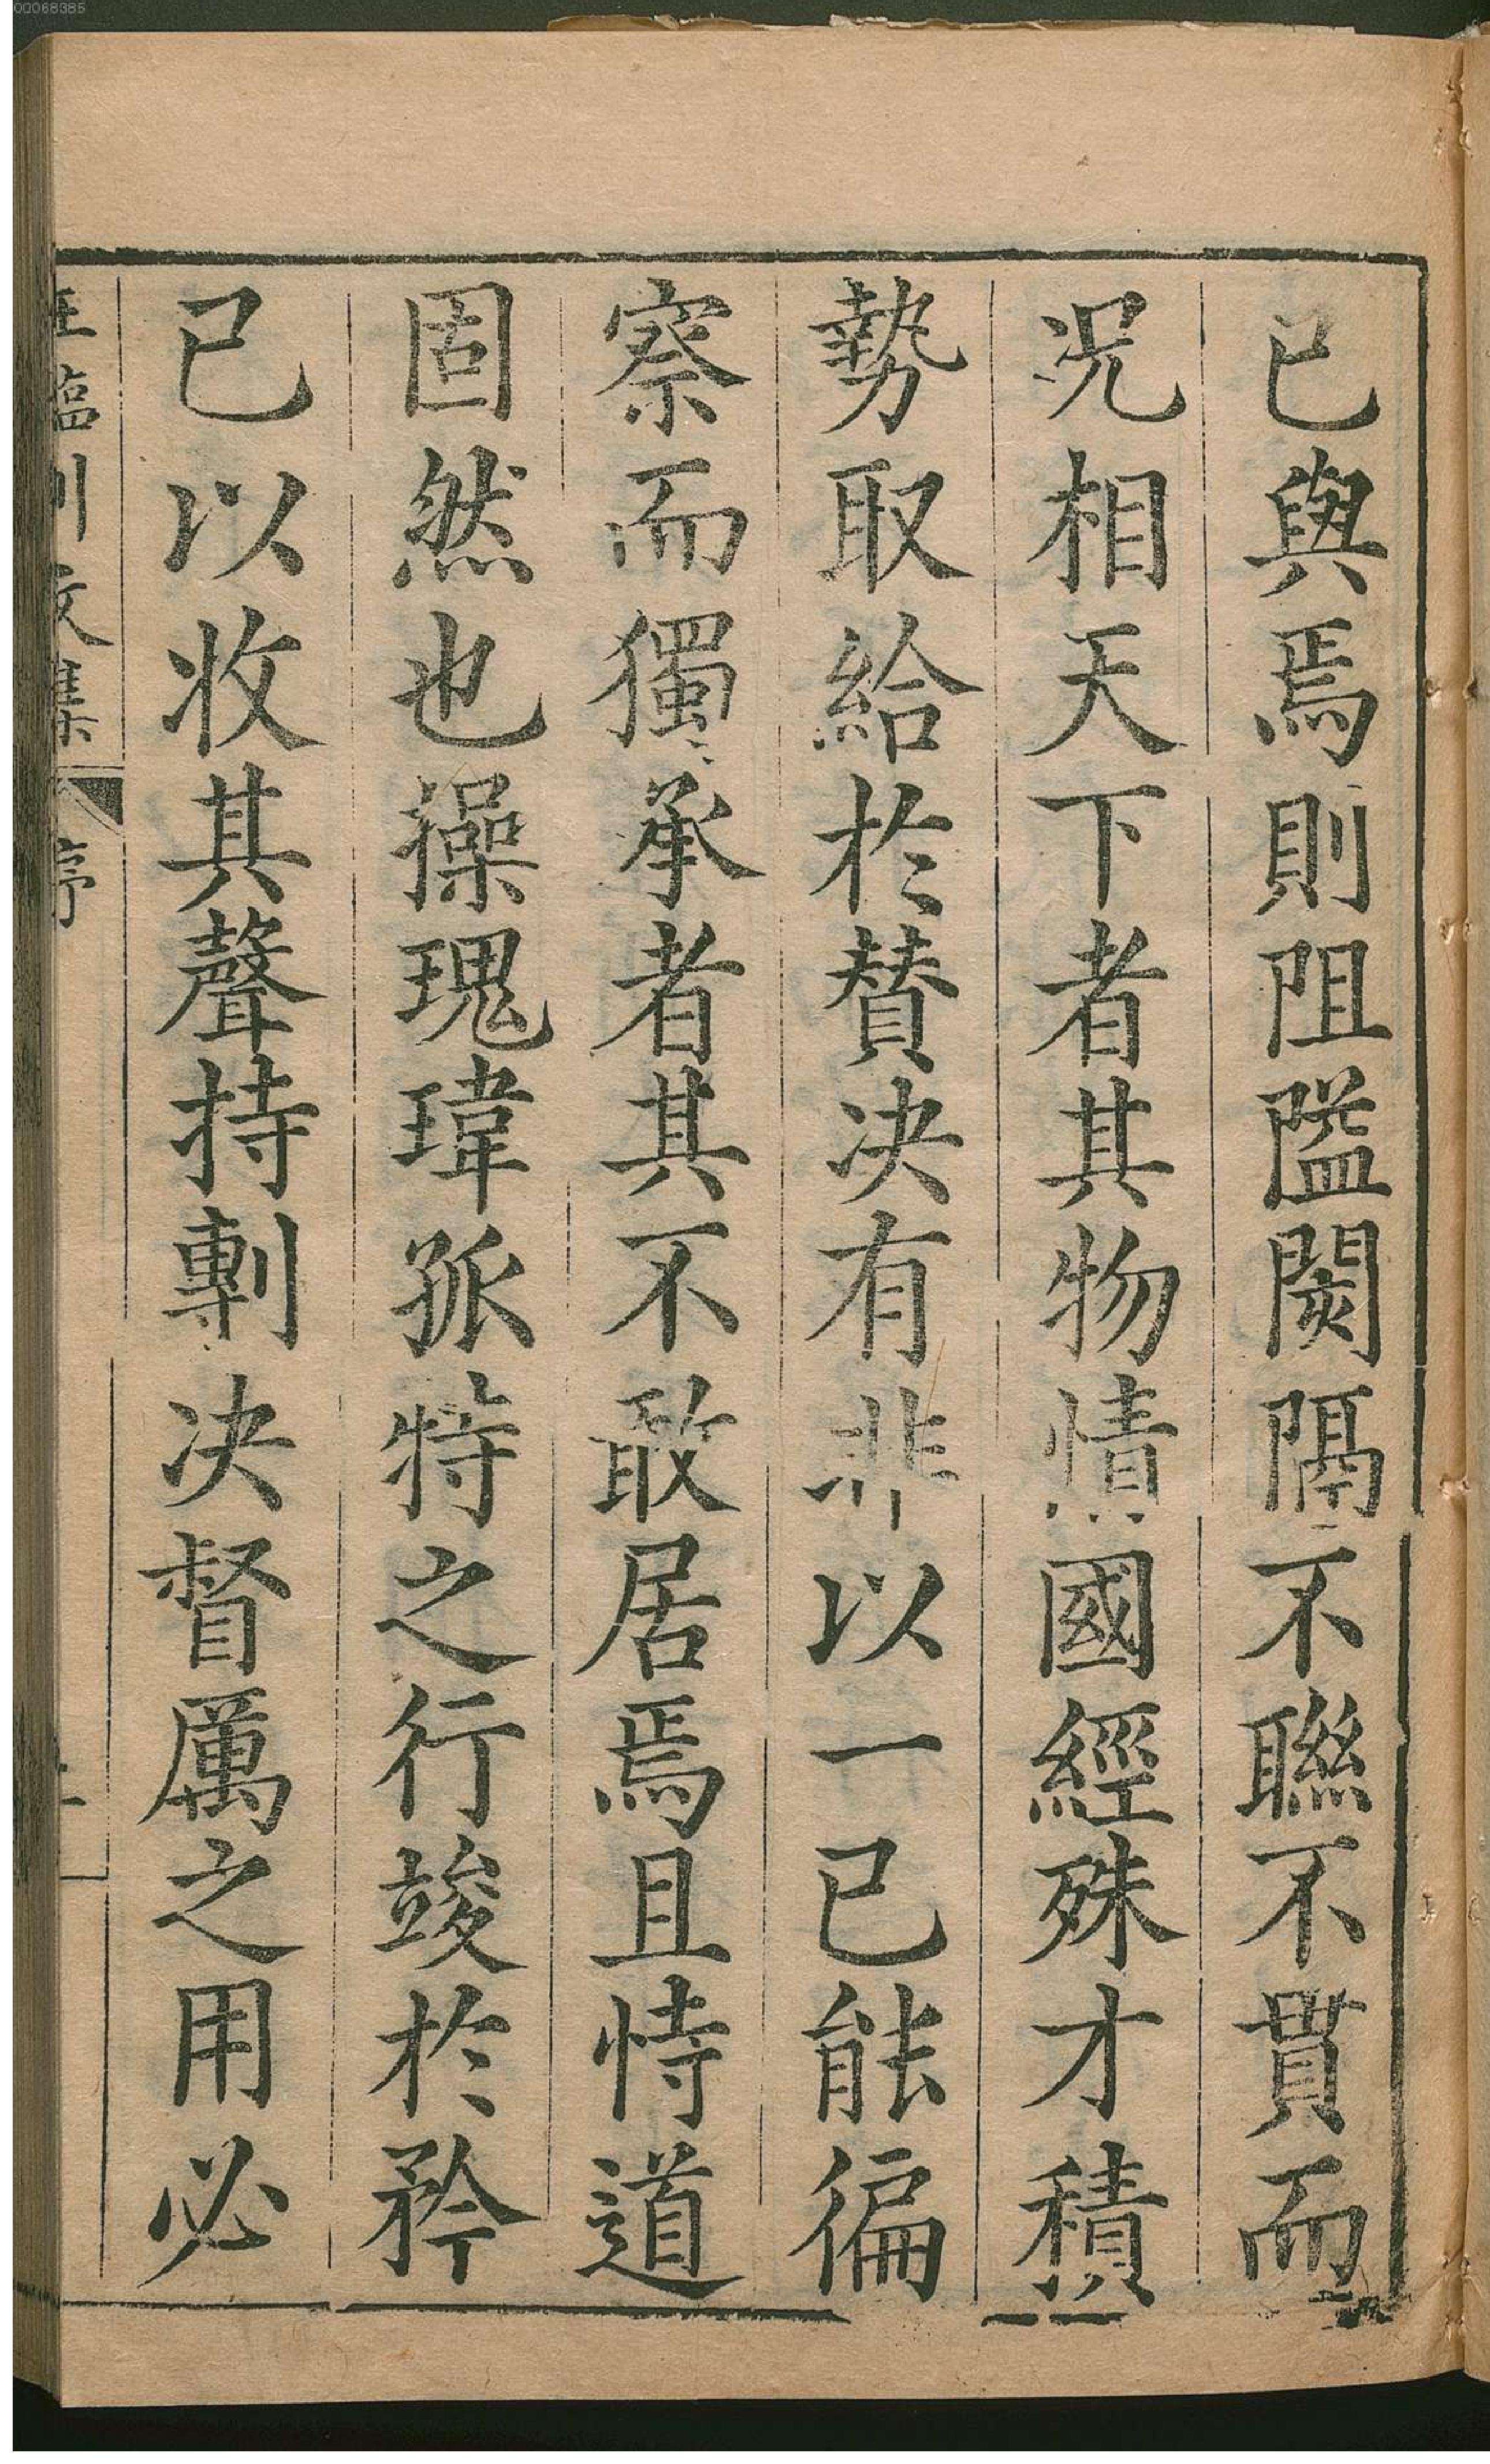 已與焉則阻隘閡隔不聯不貫而
况相天下者其物情國經殊才積
勢取給於賛决有非以一已能徧
察而獨承者其不敢居焉且恃道
固然也操瑰瑋孤特之行竣於矜
已以收其聲持剸决督厲之用必
臨川文集 序
00068385